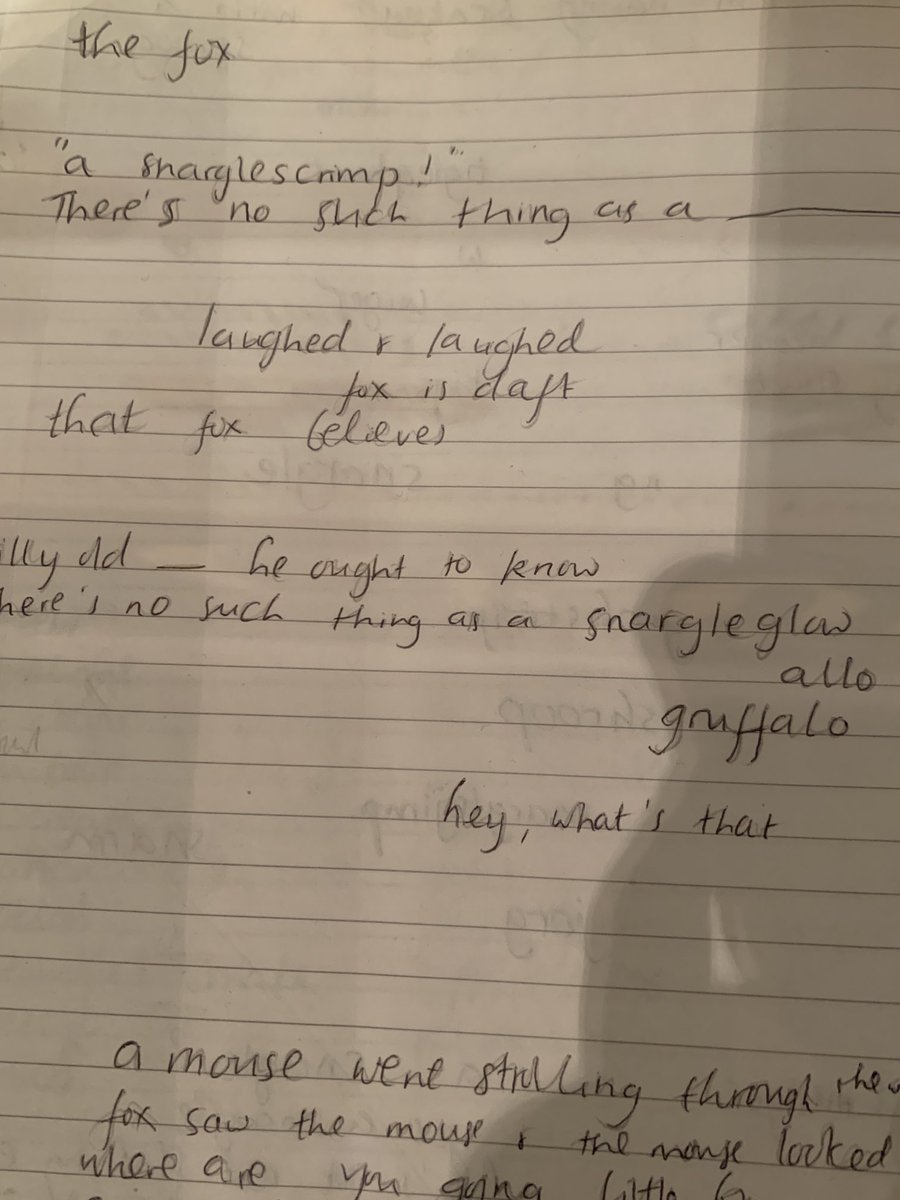 the fox
"a snarglescrimp!"
There's no such thing as a
laughed & laughed
fox is daft
that fox believes
illy old — he ought to know
here's no such thing as a snargleglow
allo
gruffalo
hey, what's that
a mouse went strolling through the
fox saw the mouse & the mouse looked
where are you going little